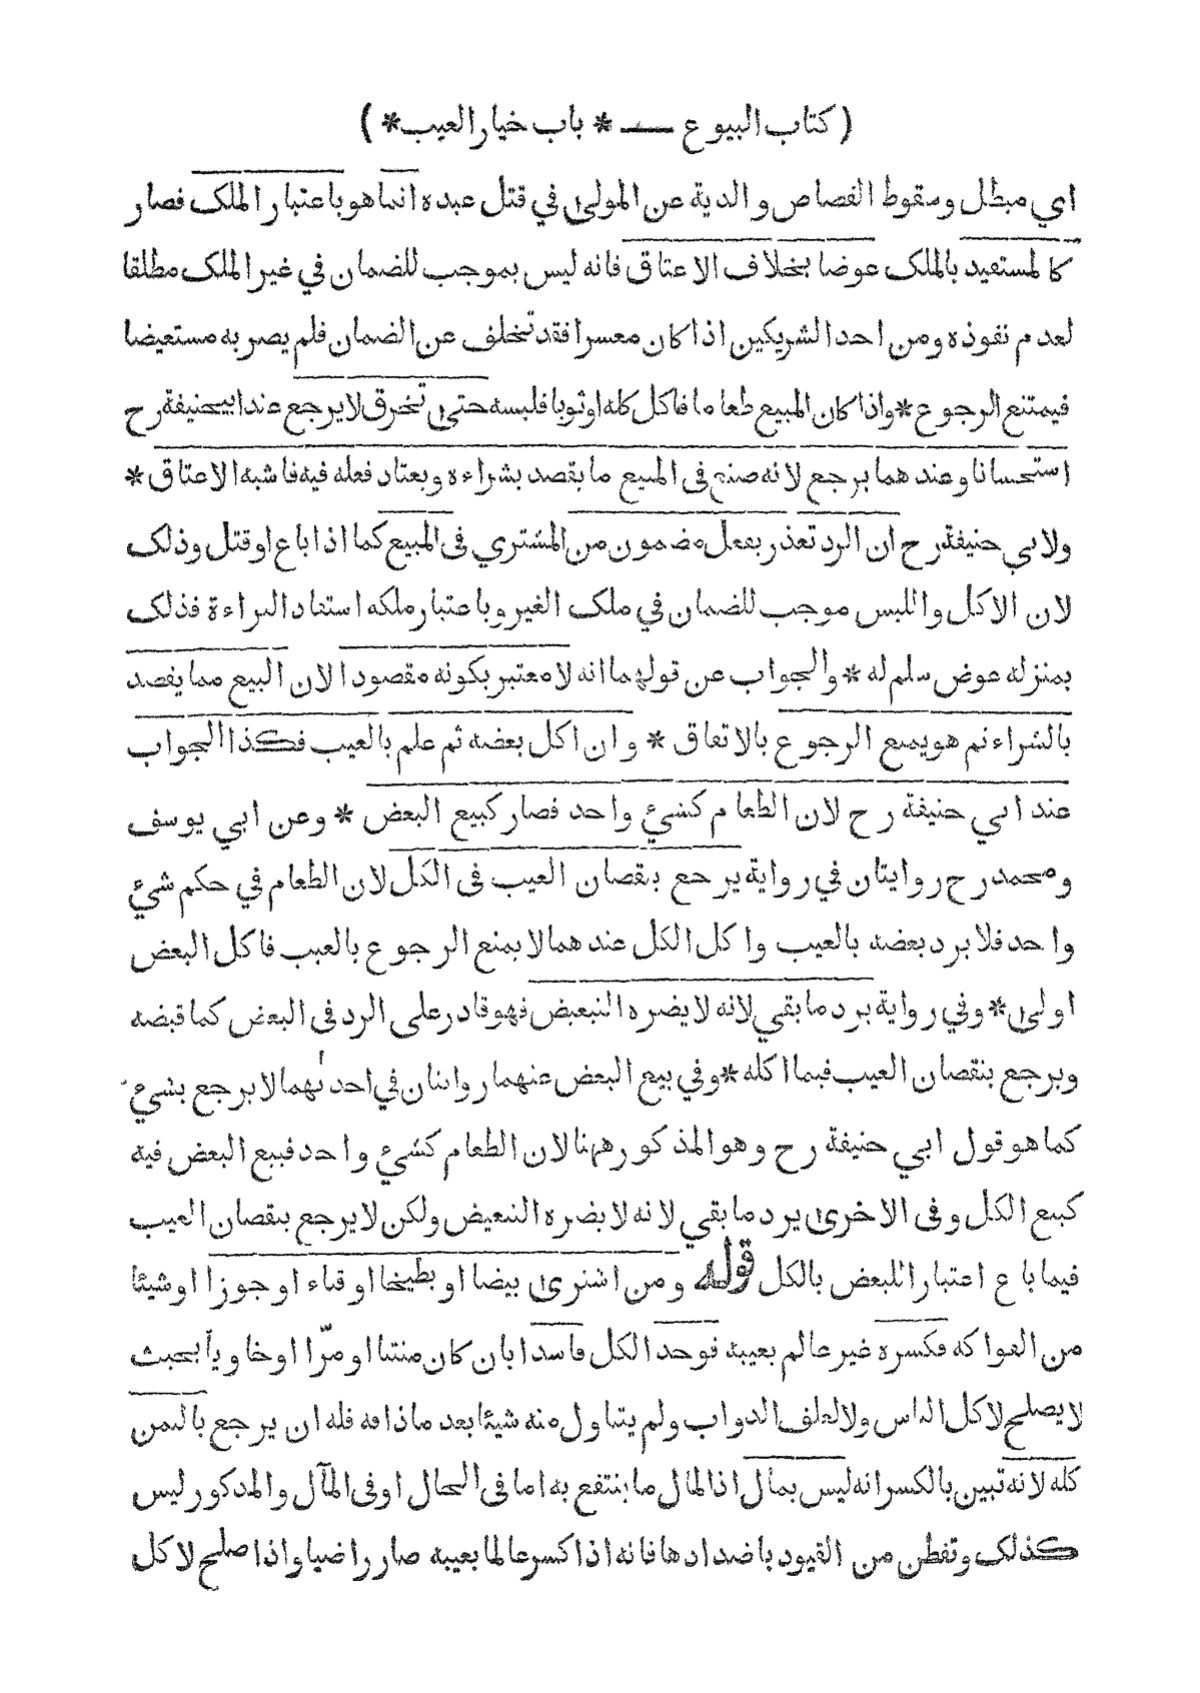 ( كتاب البيوع — * باب خيار العيب * )
اي مبطل وسقوط القصاص والدية عن المولى في قتل عبده انما هو باعتبار الملك فصار
كالمستفيد بالملك عوضا بخلاف الاعتاق فانه ليس بموجب للضمان في غير الملك مطلقا
لعدم نفوذه ومن احد الشريكين اذا كان معسرا فقد تخلف عن الضمان فلم يصر به مستعيضا
فيمتنع الرجوع * واذا كان المبيع طعاما فاكل كله او ثوبا فلبسه حتى تخرق لا يرجع عند ابيحنيفة رح
استحسانا وعندهما يرجع لانه صنع في المبيع ما يقصد بشراءه ويعتاد فعله فيه فاشبه الاعتاق *
ولابي حنيفة رح ان الرد تعذر بفعل مضمون من المشتري في المبيع كما اذا باع او قتل وذلك
لان الاكل واللبس موجب للضمان في ملك الغير وباعتبار ملكه استفاد البراءة فذلك
بمنزله عوض سلم له * والجواب عن قولهما انه لا معتبر بكونه مقصودا الان البيع مما يقصد
بالشراء ثم هو يمنع الرجوع بالاتفاق * وان اكل بعضه ثم علم بالعيب فكذا الجواب
عند ابي حنيفة رح لان الطعام كشئ واحد فصار كبيع البعض * وعن ابي يوسف
ومحمد رح روايتان في رواية يرجع بنقصان العيب في الكل لان الطعام في حكم شئ
واحد فلا يرد بعضه بالعيب واكل الكل عندهما لا يمنع الرجوع بالعيب فاكل البعض
اولى * وفي رواية يرد ما بقي لانه لا يضره التبعيض فهو قادر على الرد في البعض كما قبضه
ويرجع بنقصان العيب فيما اكله * وفي بيع البعض عنهما روايتان في احدٰهما لا يرجع بشئ
كما هو قول ابي حنيفة رح وهو المذكور ههنا لان الطعام كشئ واحد فبيع البعض فيه
كبيع الكل وفي الاخرى يرد ما بقي لانه لا يضره التبعيض ولكن لا يرجع بنقصان العيب
فيما باع اعتبارا للبعض بالكل قوله ومن اشترى بيضا او بطيخا او قثاء او جوزا او شيئا
من الفواكه فكسره غير عالم بعيبه فوجد الكل فاسدا بان كان منتنا او مرّا او خاويا بحيث
لا يصلح لاكل الناس ولا لعلف الدواب ولم يتناول منه شيئا بعد ما ذاقه فله ان يرجع بالثمن
كله لانه تبين بالكسر انه ليس بمال اذ المال ما ينتفع به اما في الحال او في المآل والمذكور ليس
كذلك وتفطن من القيود باضدادها فانه اذا كسر عالما بعيبه صار راضيا واذا صلح لاكل